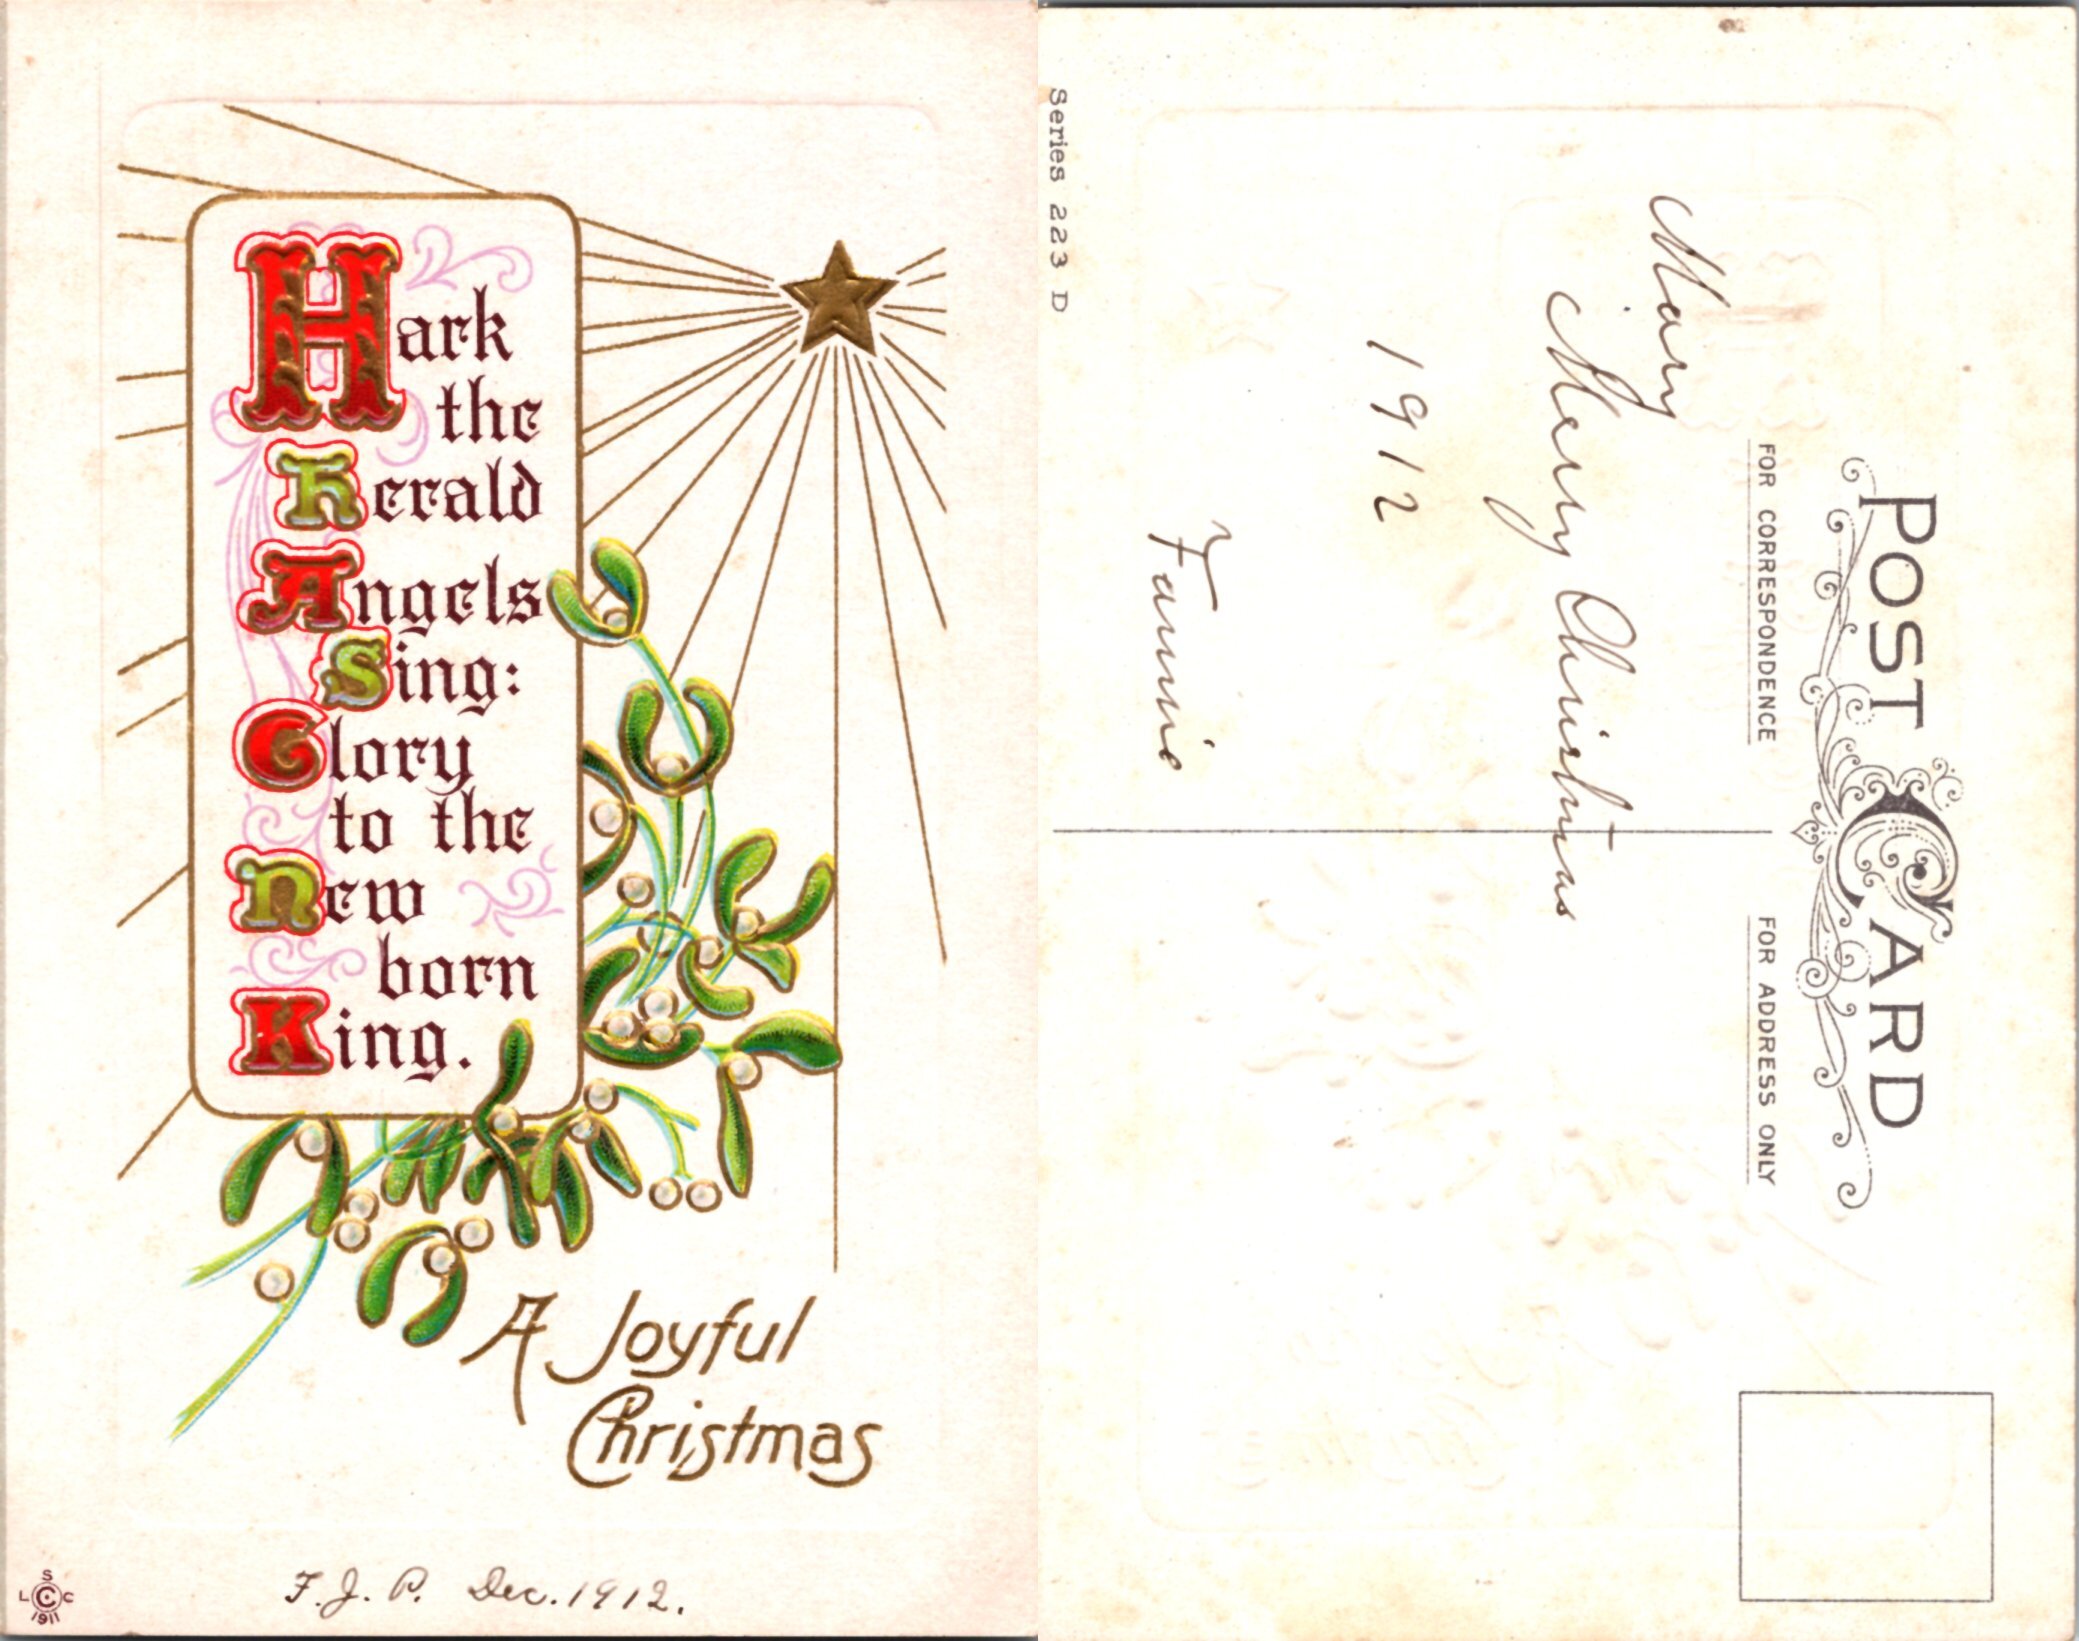 Hark
the
Herald
Angels
Sing:
Glory
to the
New
born
King.
A Joyful
Christmas
F. J. P. Dec. 1912.
S
L C C
1911
Series 223 D
POST CARD
FOR CORRESPONDENCE
FOR ADDRESS ONLY
Mary
Merry Christmas
1912
Fannie